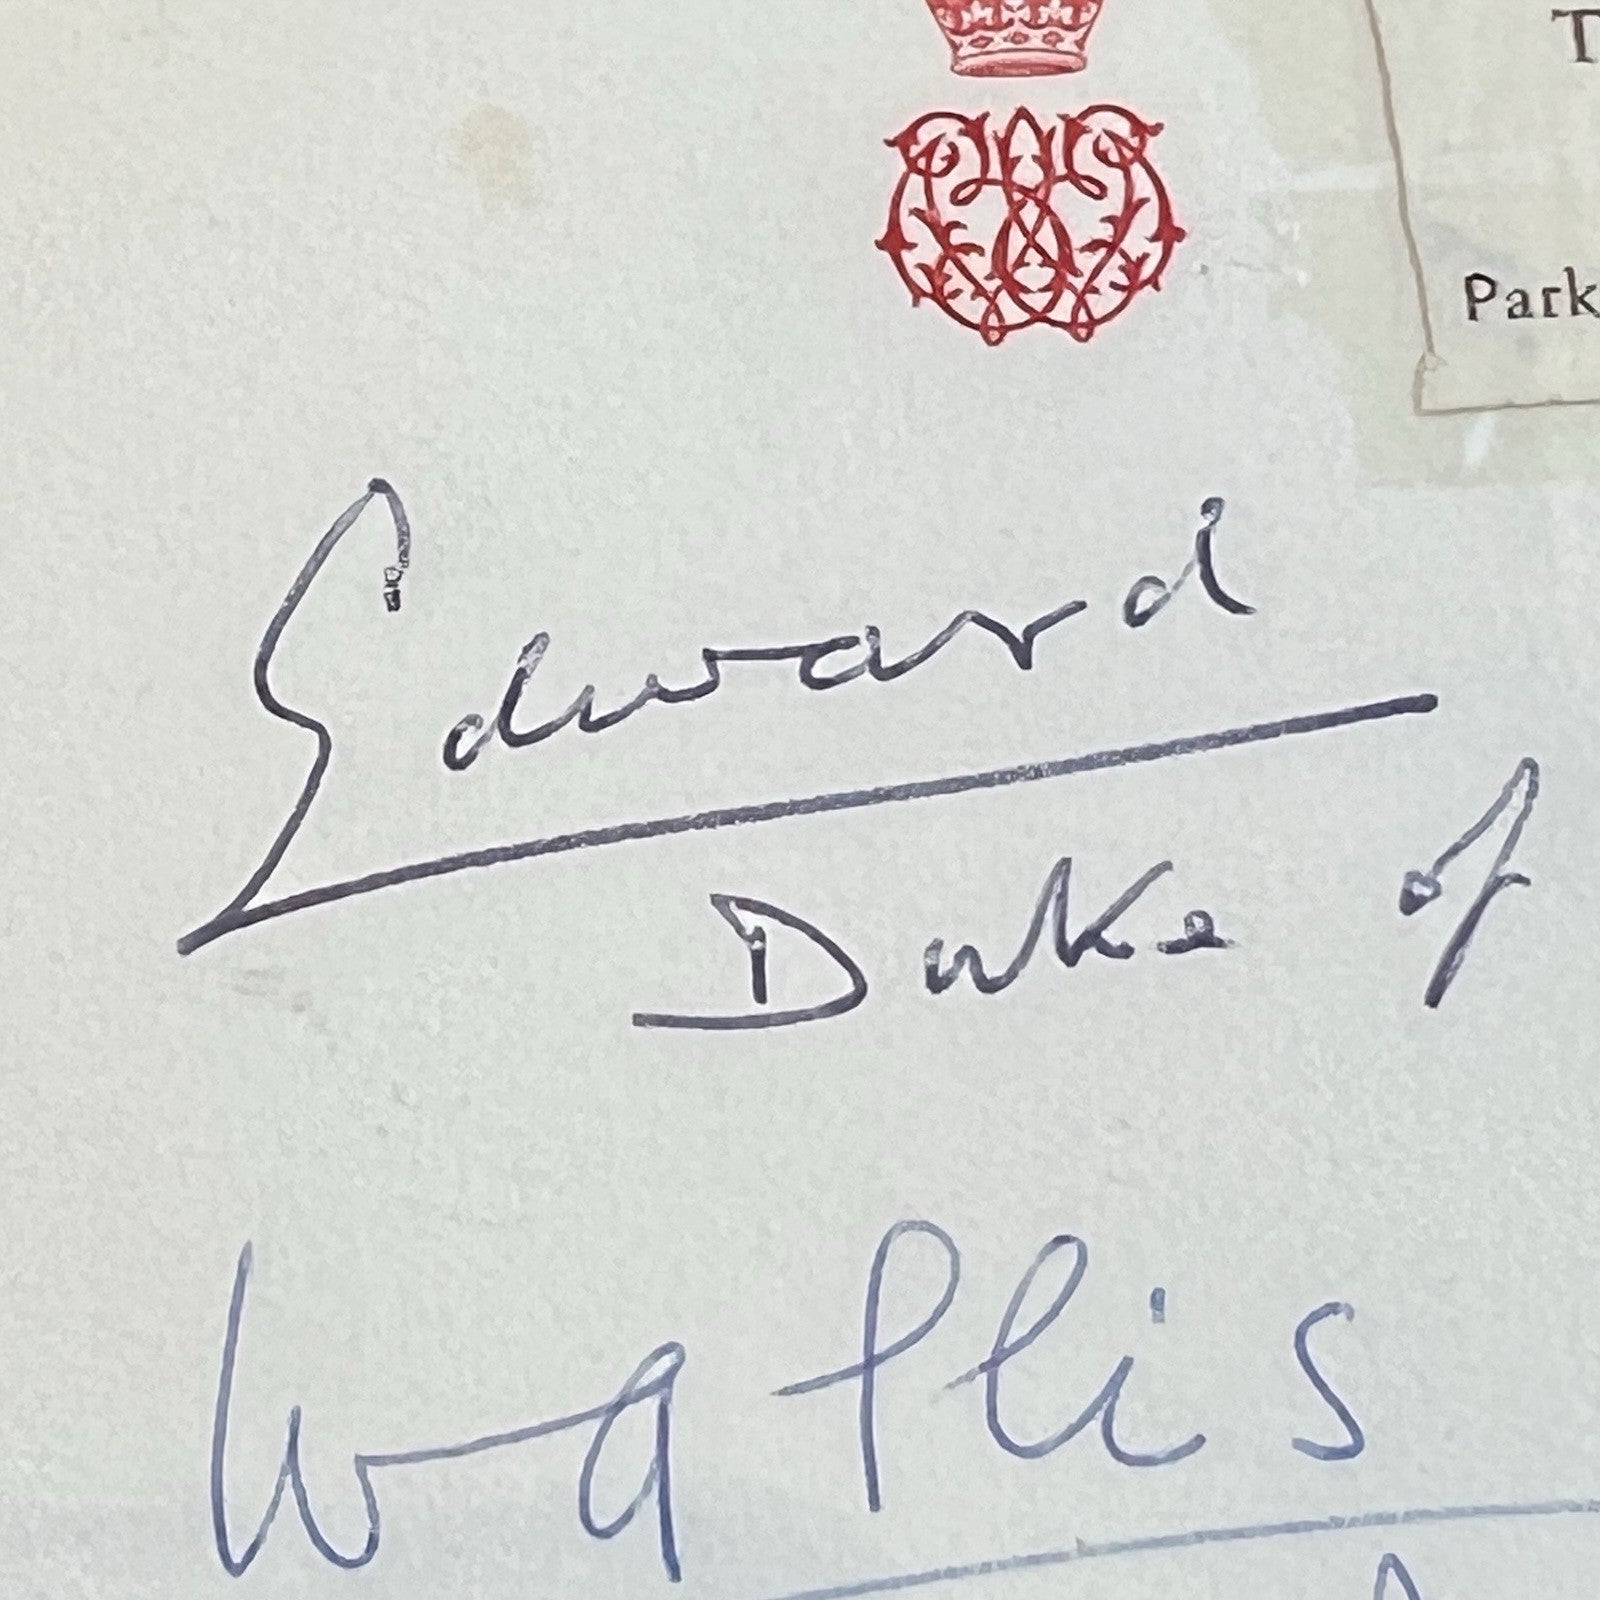 T
Park
Edward
Duke of
Wallis